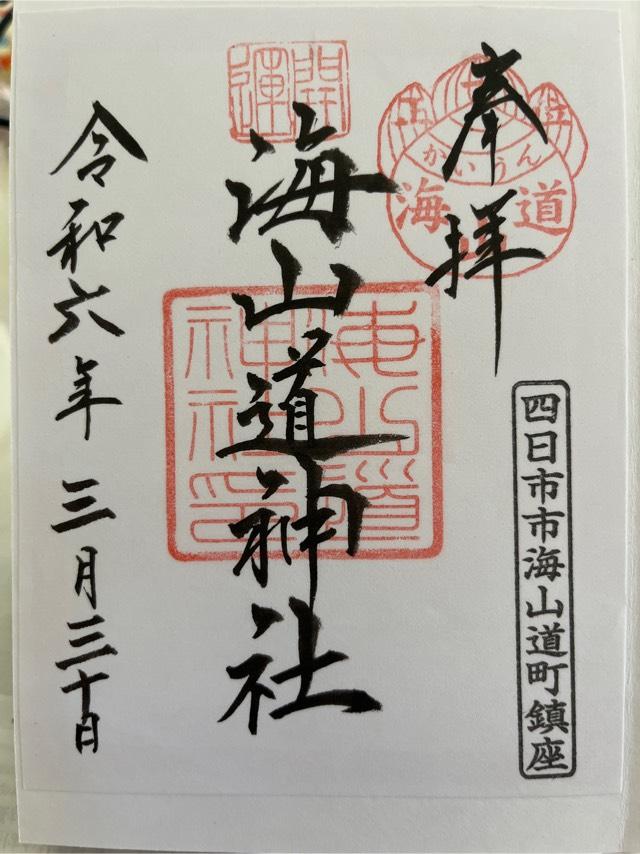 奉拝
かいうん
海山道
四日市市海山道町鎮座
開運
海山道神社
海山道神社印
令和六年三月三十日